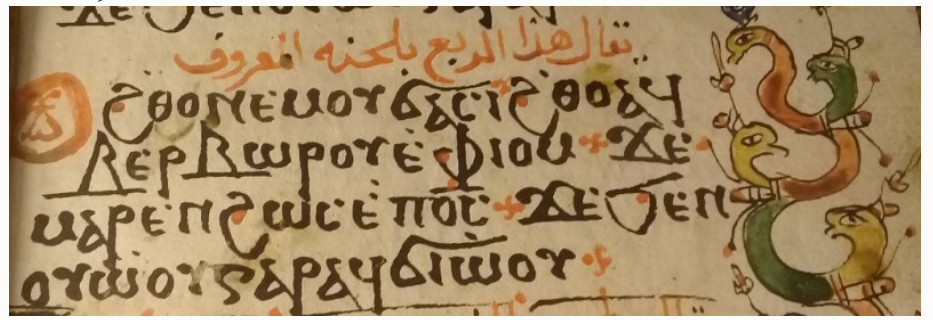 تقال هذا الربع بلحنه المعروف
ϩⲑⲟ ⲛⲉⲙ ⲟⲩϭⲁⲥⲓϩⲑⲟ ⲁϥ
ⲃⲉⲣⲃⲱⲣⲟⲩ ⲉ̀ⲫⲓⲟⲙ ϫⲉ
ⲙⲁⲣⲉⲛϩⲱⲥ ⲉ̀ⲡⲟ̅ⲥ̅ ϫⲉ ϧⲉⲛ
ⲟⲩⲱ̀ⲟⲩ ⲅⲁⲣ ⲁϥϭⲓⲱ̀ⲟⲩ